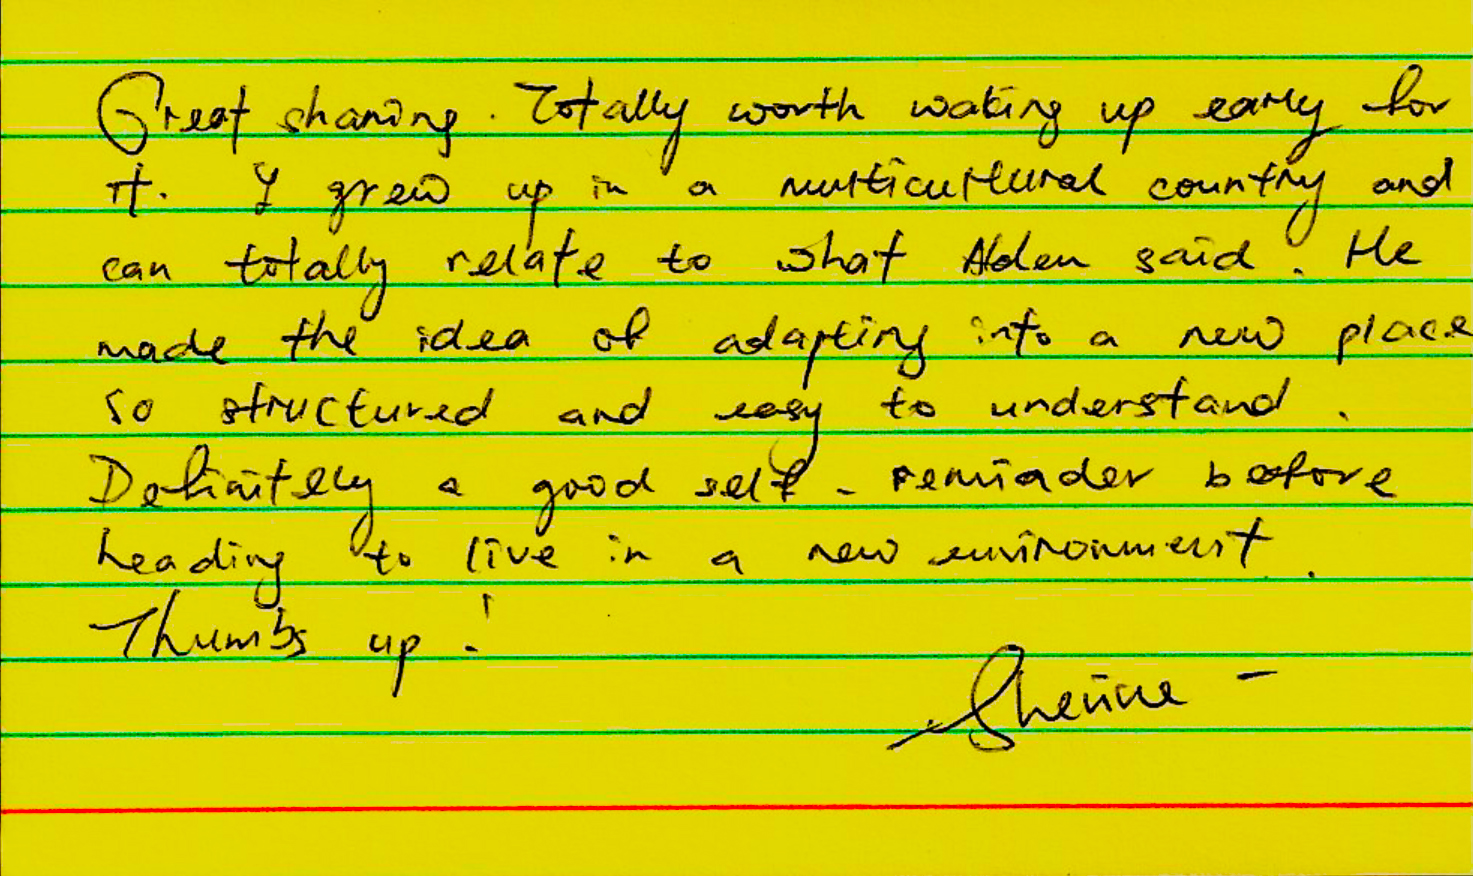 Great sharing. Totally worth waking up early for
it. I grew up in a multicultural country and
can totally relate to what Alden said. He
made the idea of adapting into a new place
so structured and easy to understand.
Definitely a good self-reminder before
heading to live in a new environment.
Thumbs up!